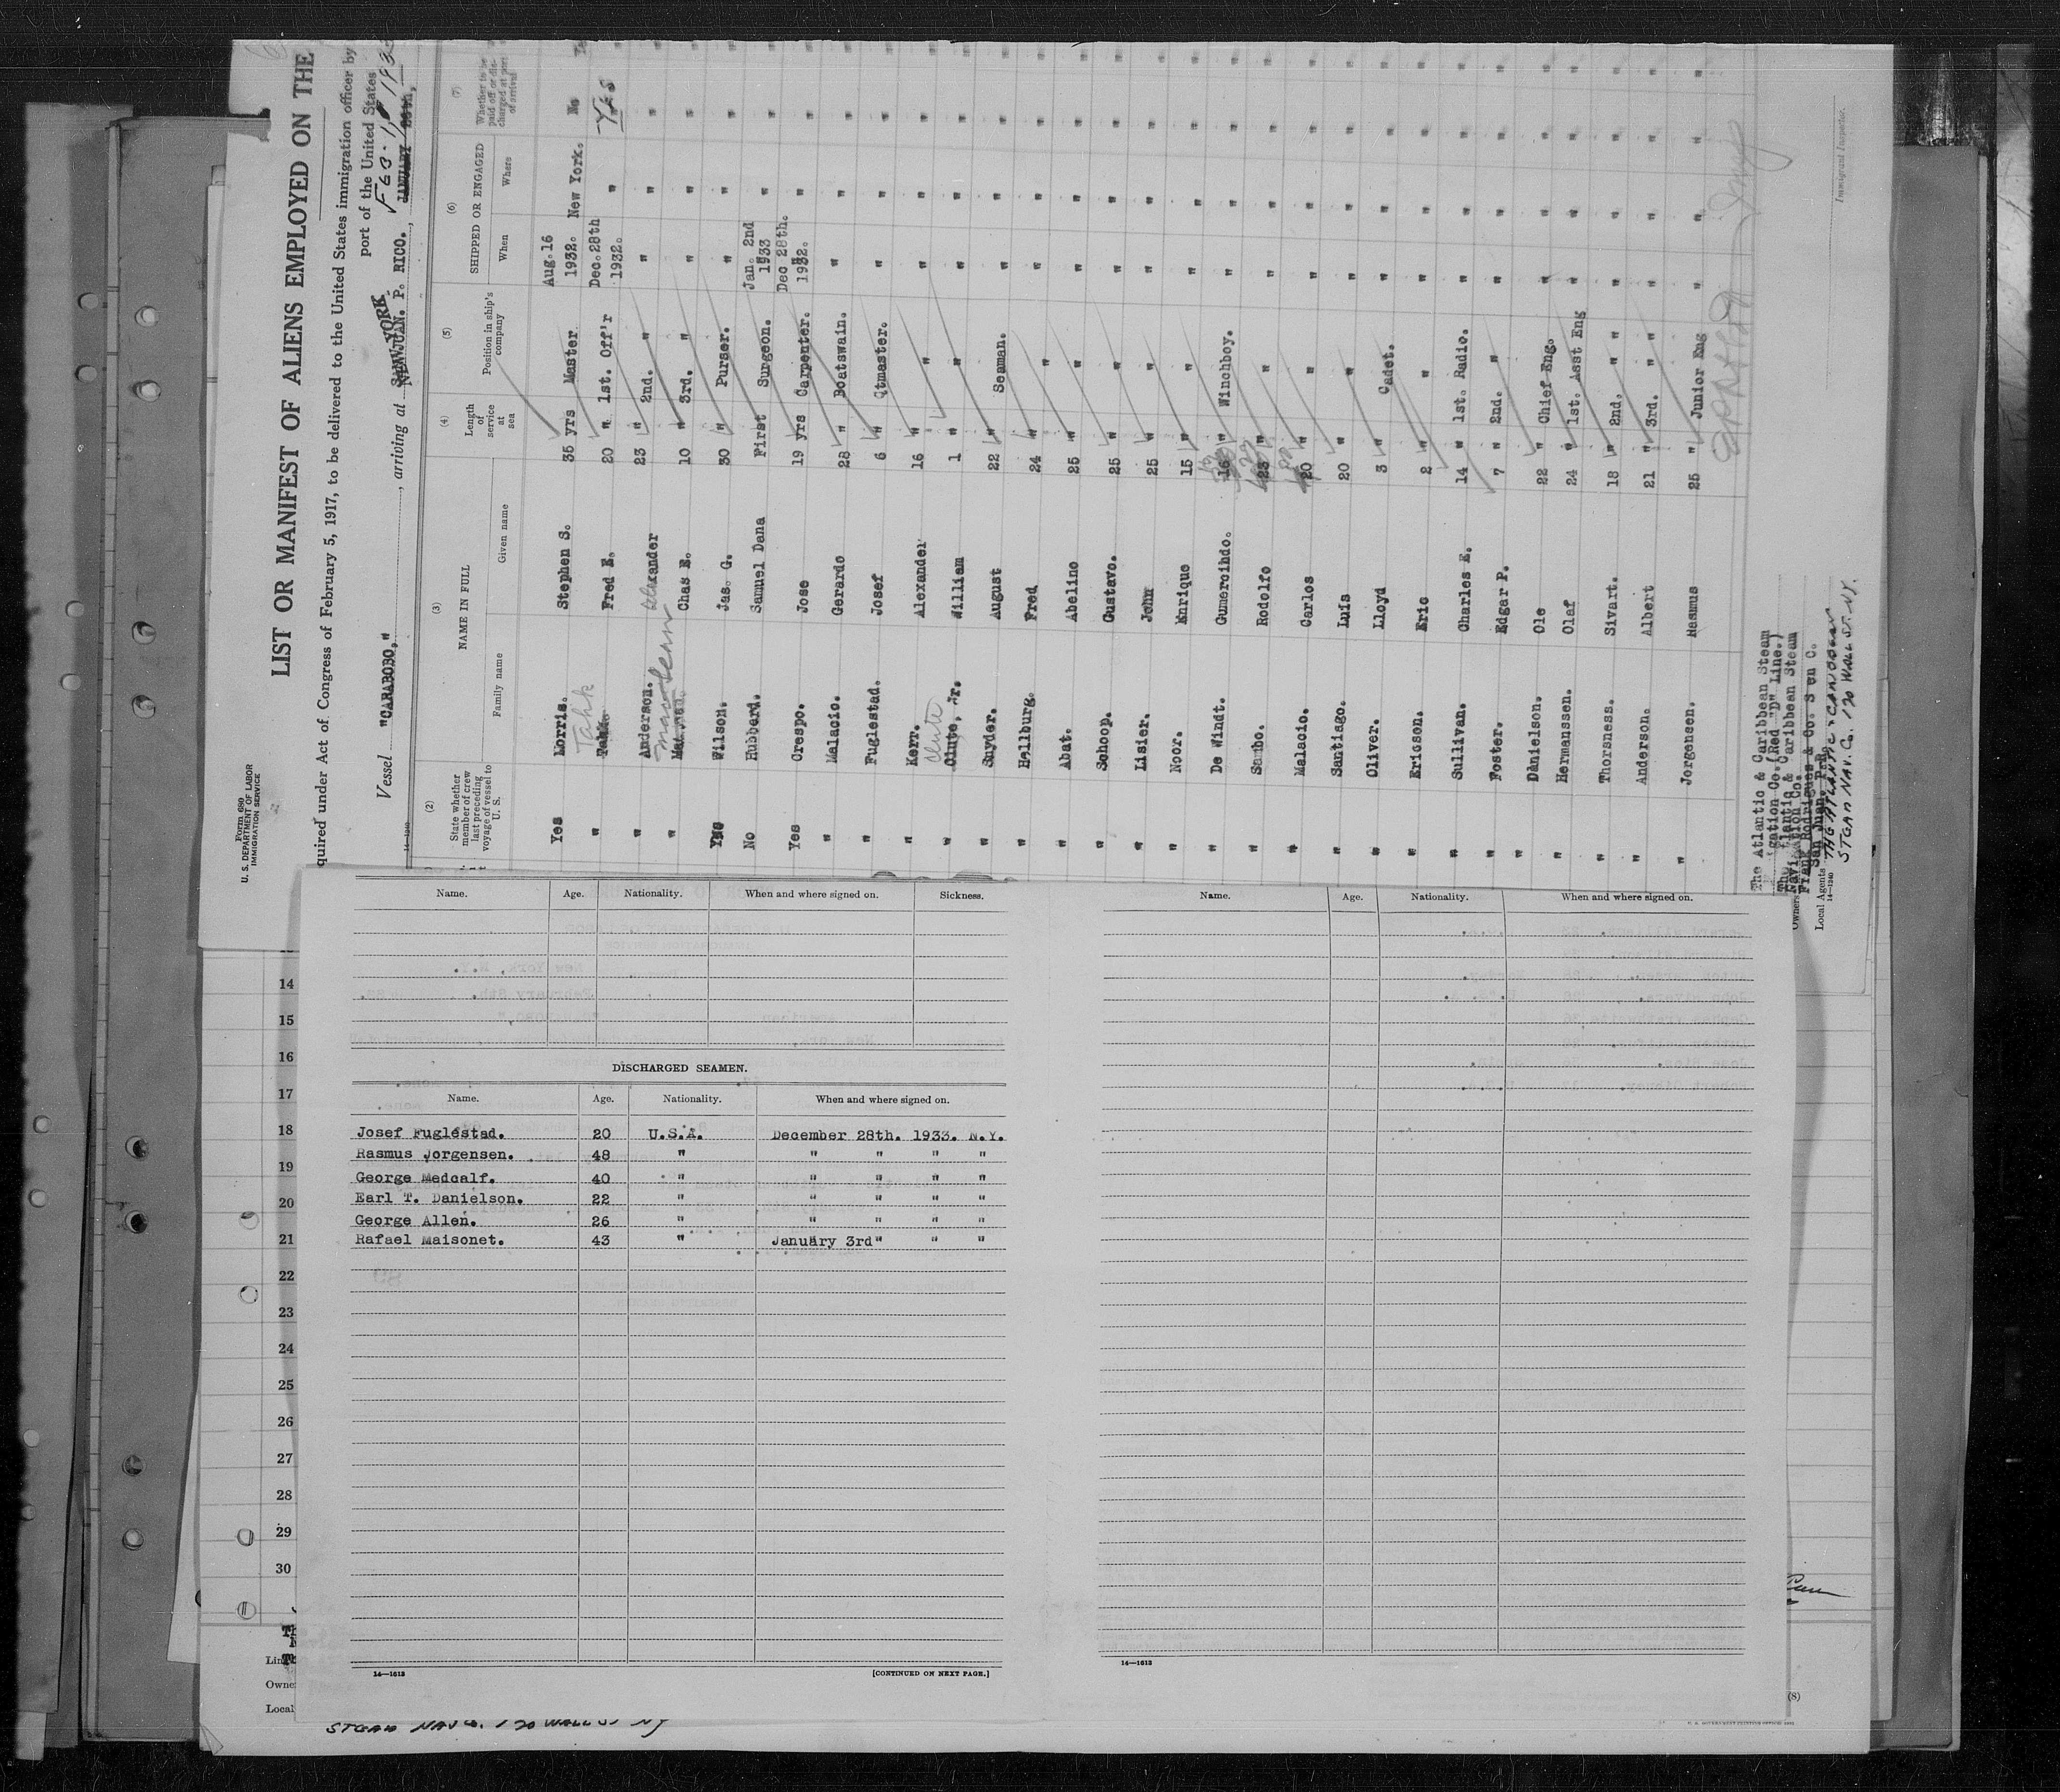 Form 680
U. S. DEPARTMENT OF LABOR
IMMIGRATION SERVICE
LIST OR MANIFEST OF ALIENS EMPLOYED ON THE
quired under Act of Congress of February 5, 1917, to be delivered to the United States immigration officer by
port of the United States
Vessel "CARABOBO," , arriving at SAN JUAN. P. RICO. , JANUARY
NEW YORK
14—1240
(2) (3) (4) (5) (6) (7)
State whether member of crew last preceding voyage of vessel to U. S.
NAME IN FULL
Family name Given name
Length of service at sea
Position in ship's company
SHIPPED OR ENGAGED
When Where
Whether to be paid off or discharged at port of arrival
Yes Morris. Stephen S. 35 yrs Master Aug. 16 1932. New York. No
" Tahk Fred E. 20 " 1st. Off'r Dec. 28th 1932. " Yes
" Anderson. Alexander 23 " 2nd. " " " "
" Chas E. 10 " 3rd. " " " "
Yes Wilson. Jas. G. 30 " Purser. " " "
No Hubbard. Samuel Dana First Surgeon. Jan. 2nd 1933 " "
Yes Crespo. Jose 19 yrs Carpenter. Dec 28th. 1932. " "
" Malacio. Gerardo 28 " Boatswain. " " "
" Fuglestad. Josef 6 " Qtmaster. " " "
" Kerr. Alexander 16 " " " " "
" Clute, Jr. William 1 " " " " "
Clute
" Snyder. August 22 " Seaman. " " "
" Hellburg. Fred 24 " " " " "
" Abat. Abelino 25 " " " " "
" Schoop. Gustavo. 25 " " " " "
" Lisier. John 25 " " " " "
" Noor. Enrique 15 " " " " "
" De Windt. Gumercihdo. 16 " Winchboy. " " "
" Sambo. Rodolfo 23 " " " " "
" Malacio. Carlos 20 " " " " "
" Santiago. Luis 20 " " " " "
" Oliver. Lloyd 3 " Cadet. " " "
" Ericson. Eric 2 " " " " "
" Sullivan. Charles E. 14 " 1st. Radio. " " "
" Foster. Edgar P. 7 " 2nd. " " " "
" Danielson. Ole 22 " Chief Eng. " " "
" Hermanssen. Olaf 24 " 1st. Asst Eng " " "
" Thorsness. Sivart. 18 " 2nd. " " " " "
" Anderson. Albert 21 " 3rd. " " " " "
" Jorgensen. Rasmus 25 " Junior Eng " " "
The Atlantic & Caribbean Steam
gation Co. (Red "D" Line.)
Caribbean Steam
Navigation Co.
Frank Rodrigues & Co. S en C.
San Juan. P.R.
Owners
Local Agents
14—1240
STEAM NAV. Co. 120 WALL ST. N.Y.
Immigrant Inspector.
Name. Age. Nationality. When and where signed on. Sickness.
DISCHARGED SEAMEN.
Name. Age. Nationality. When and where signed on.
Josef Fuglestad. 20 U.S.A. December 28th. 1933. N.Y.
Rasmus Jorgensen. 48 " " " " "
George Medcalf. 40 " " " " "
Earl T. Danielson. 22 " " " " "
George Allen. 26 " " " " "
Rafael Maisonet. 43 " January 3rd " " "
14—1613
[CONTINUED ON NEXT PAGE.]
Name. Age. Nationality. When and where signed on.
14—1613
14
15
16
17
18
19
20
21
22
23
24
25
26
27
28
29
30
Owne
Local
(8)